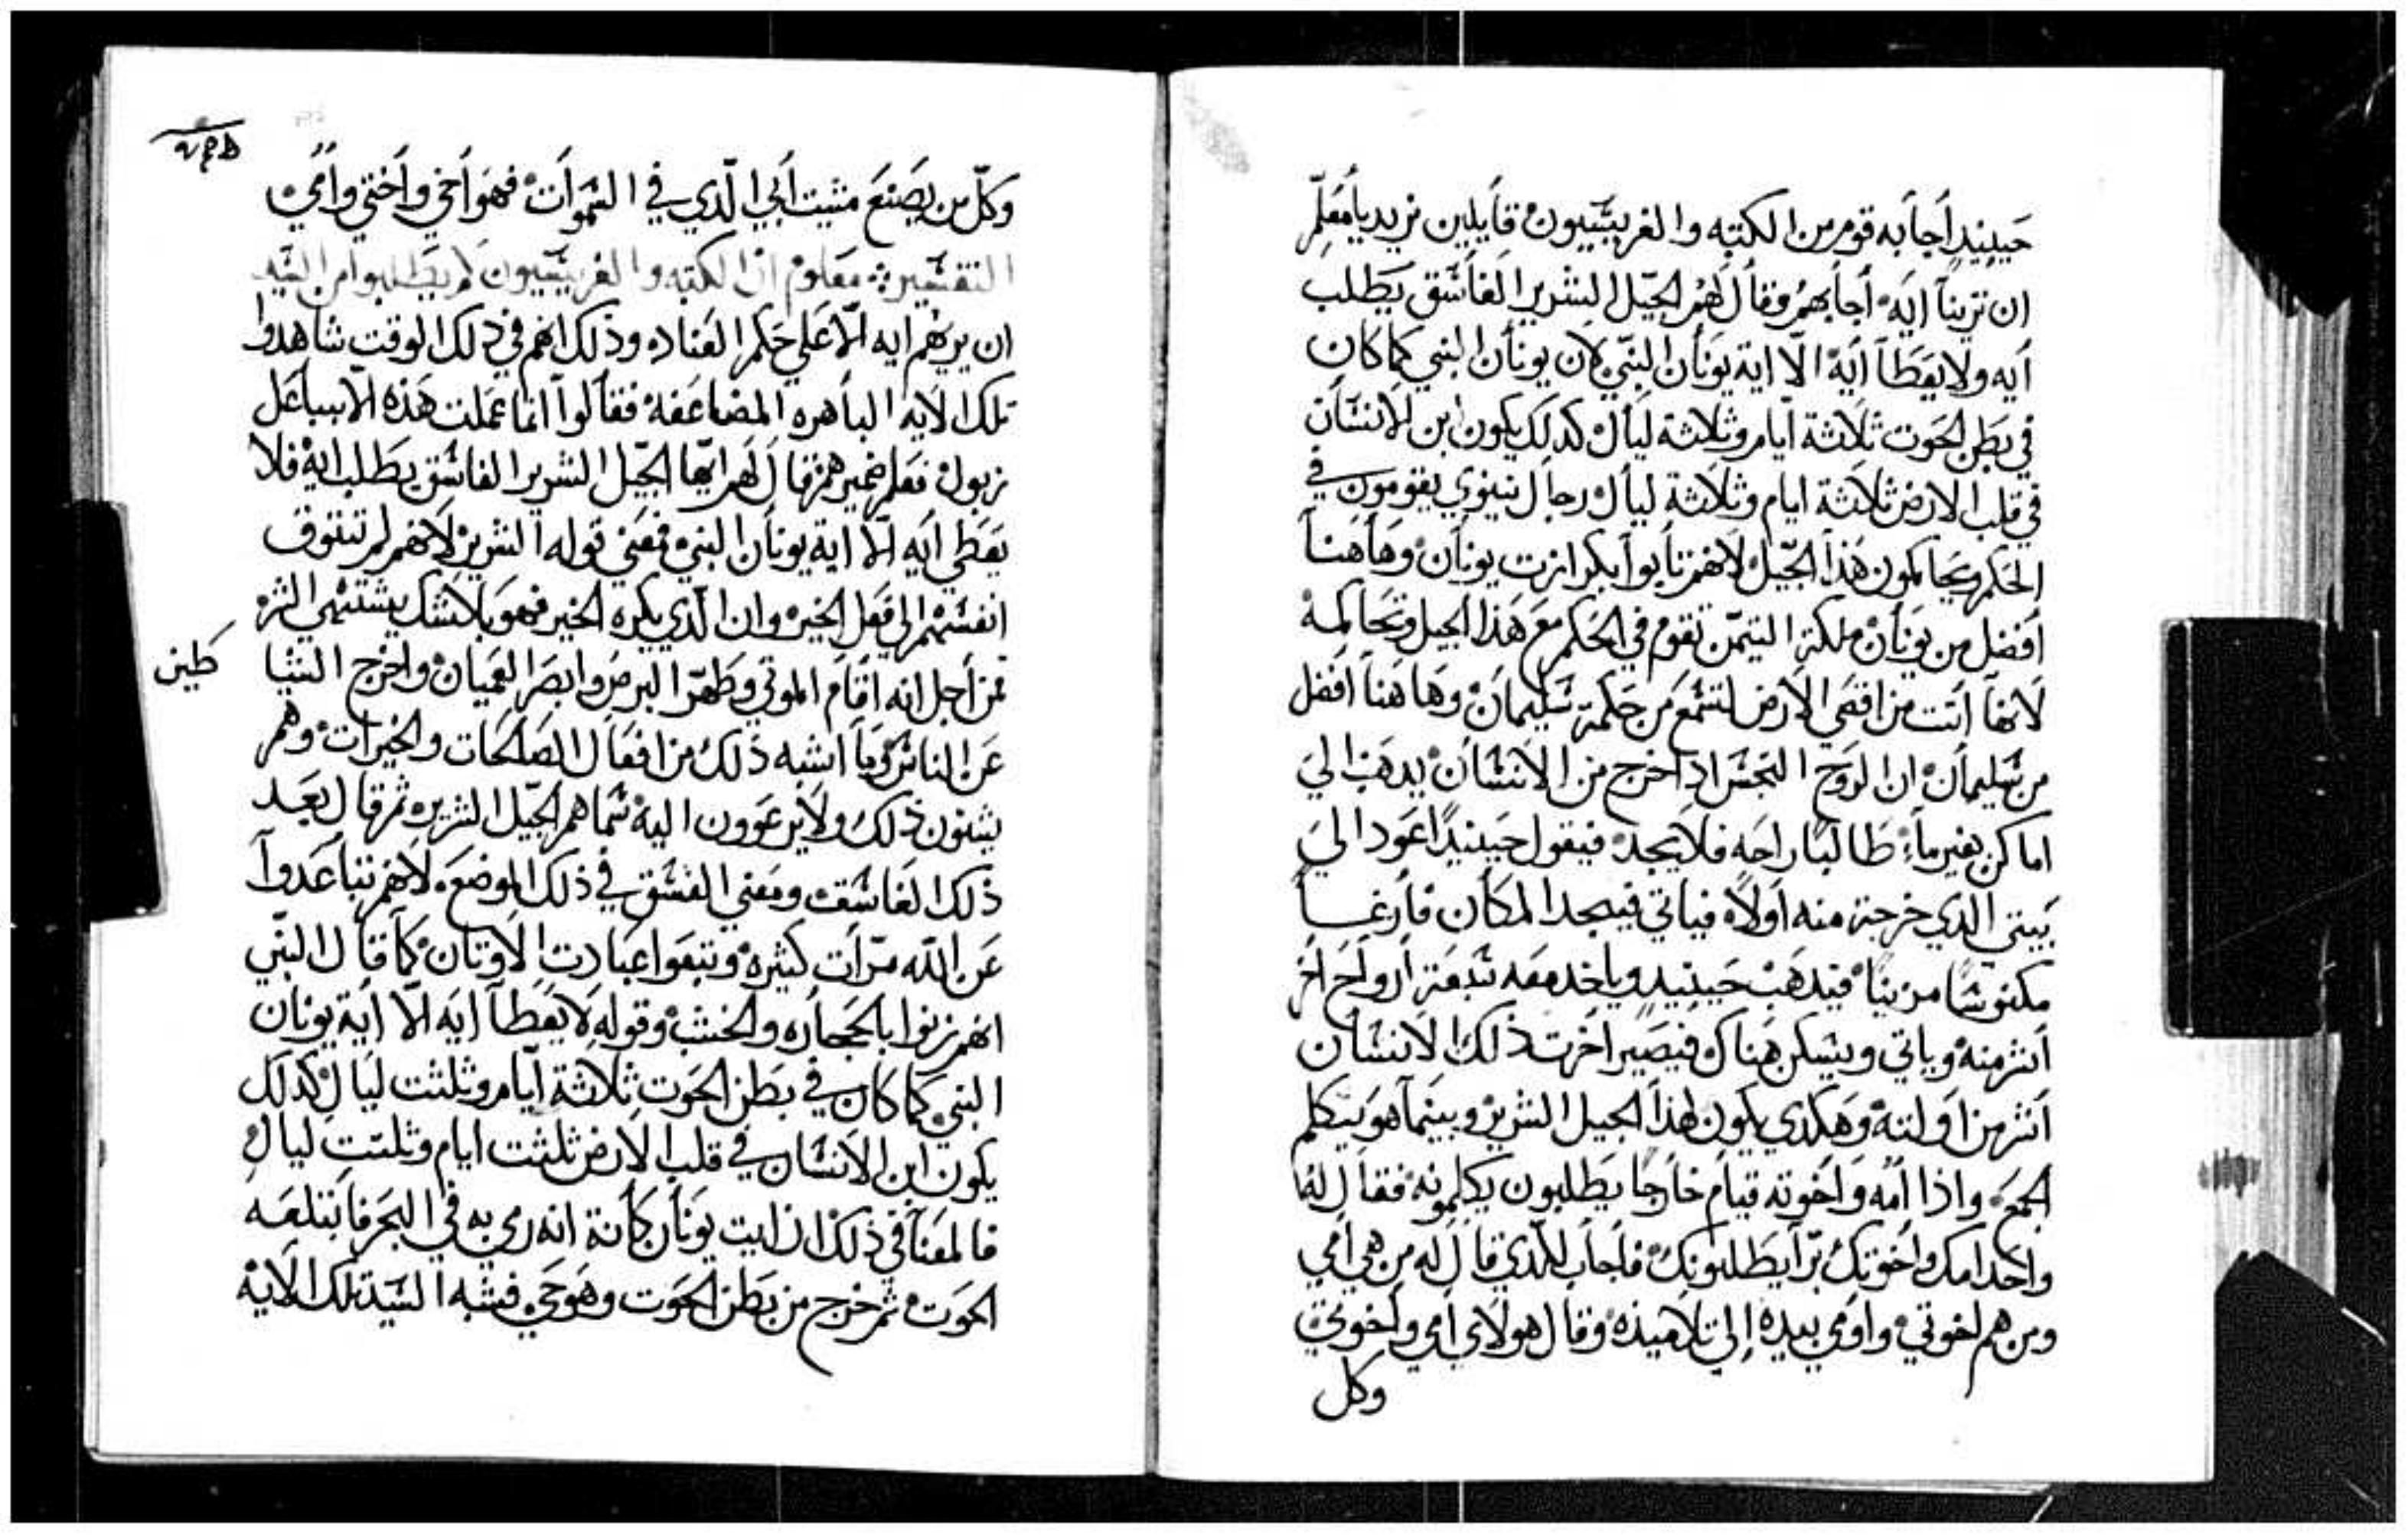 حينيذ أجابه قوم من الكتبه والفريسيون قايلين نريد يا معلم
ان ترينا ايه أجابهم وقال لهم الجيل الشرير الفاسق يطلب
أيه ولا يعطا ايه الا اية يونان النبي لان يونان النبي كما كان
في بطن الحوت ثلاثة أيام وثلاثة ليال كدلك يكون ابن الانسان
في قلب الارض ثلاثة ايام وثلاثة ليال رجال نينوي يقومون في
الحكم ويحاكمون هذا الجيل لانهم تابوا بكرازت يونان وهاهنا
أفضل من يونان ملكة التيمن تقوم في الحكم مع هذا الجيل وتحاكمه
لانها أتت من اقصي الارض لتسمع من حكمة سليمان وهاهنا افضل
من سليمان ان الروح النجس ادا خرج من الانسان يدهب الي
اماكن بغير ماء طالبا راحه فلا يجد فيقول حينيدا اعود الي
بيتي الدي خرجة منه أولاً فياتي فيجد المكان فارغا
مكنوسا مزينا فيدهب حينيد وياخد معه سبعة أرواح اخر
أشر منه وياتي ويسكن هناك فيصير اخرت ذلك الانسان
أشر من اولته وهكدي يكون لهذا الجيل الشرير وبينما هو يتكلم
الجمع واذا أمه واخوته قيام خارجا يطلبون يكلمونه فقال له
واحد امك واخوتك برا يطلبونك فأجاب للذي قال له من هي أمي
ومن هم اخوتي واومي بيده إلي تلاميذه وقال هولاي امي واخوتي
وكل
وكل من يصنع مشيت أبي الذي في السموات فهو أخي وأختي وأمي
التفسير معلوم ان الكتبه والفريسيون لم يطلبوا من السيد
ان يريهم ايه الا علي حكم العناد وذلك انهم في ذلك الوقت شاهدوا
تلك الايه الباهره المضاعفه فقالوا انما عملت هذه الا بباعل
زبول فعلم ضميرهم وقال لهم ايها الجيل الشرير الفاسق يطلب ايه فلا
يعطي أيه الا اية يونان النبي فمعني قوله الشرير لانهم لم تتتوق
انفسهم إلي فعل الخير وان الذي يكره الخير فهو بلاشك يشتهي الشر
فمن أجل انه اقام الموتي وطهر البرص وابصر العميان واخرج الشياطين
عن الناس وما اشبه ذلك من افعال الصلحات والخيرات وهم
يشنون ذلك ولا يرعوون اليه سماهم الجيل الشرير ثم قال بعد
ذلك الفاسق ومعني الفسق في ذلك الموضع لانهم تباعدوا
عن الله مرات كثيره وتبعوا عبادت الاوتان كما قال النبي
انهم زنوا بالحجاره والخشب وقوله لا يعطا أيه الا أية يونان
النبي كما كان في بطن الحوت ثلاثة أيام وثلثت ليال كدلك
يكون ابن الانسان في قلب الارض ثلثت ايام وثلثت ليال
فالمعنا في ذلك ان ايت يونان كانة انه رمي به في البحر فابتلعه
الحوت ثم خرج من بطن الحوت وهو حي فشبه السيد تلك الايه